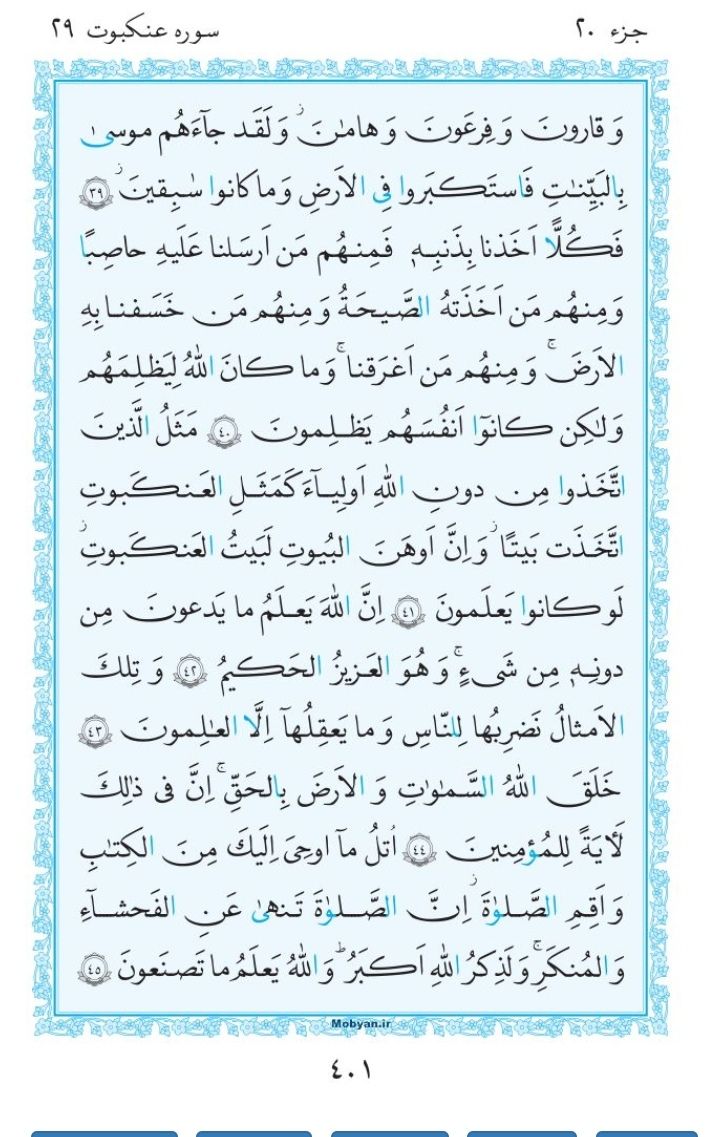 جزء ۲۰
سوره عنکبوت ۲۹
وَ قارونَ وَ فِرعَونَ وَ هامٰنَ ۖ وَ لَقَد جآءَهُم موسىٰ
بِالبَيِّنٰتِ فَاستَكبَروا فِى الاَرضِ وَ ما كانوا سٰبِقينَ ﴿۳۹﴾
فَكُلًّا اَخَذنا بِذَنبِهٖ فَمِنهُم مَن اَرسَلنا عَلَيهِ حاصِبًا
وَ مِنهُم مَن اَخَذَتهُ الصَّيحَةُ وَ مِنهُم مَن خَسَفنا بِهِ
الاَرضَ ۚ وَ مِنهُم مَن اَغرَقنا ۚ وَ ما كانَ اللهُ لِيَظلِمَهُم
وَلٰكِن كانوٓا اَنفُسَهُم يَظلِمونَ ﴿٤٠﴾ مَثَلُ الَّذينَ
اتَّخَذوا مِن دونِ اللهِ اَولِيآءَ كَمَثَلِ العَنكَبوتِ
اتَّخَذَت بَيتًا ۖ وَ اِنَّ اَوهَنَ البُيوتِ لَبَيتُ العَنكَبوتِ ۖ
لَو كانوا يَعلَمونَ ﴿٤١﴾ اِنَّ اللهَ يَعلَمُ ما يَدعونَ مِن
دونِهٖ مِن شَىءٍ ۚ وَ هُوَ العَزيزُ الحَكيمُ ﴿٤٢﴾ وَ تِلكَ
الاَمثالُ نَضرِبُها لِلنّاسِ وَ ما يَعقِلُهآ اِلَّا العٰلِمونَ ﴿٤٣﴾
خَلَقَ اللهُ السَّمٰوٰتِ وَ الاَرضَ بِالحَقِّ ۚ اِنَّ فى ذٰلِكَ
لَأٰيَةً لِلمُؤمِنينَ ﴿٤٤﴾ اُتلُ مآ اوحِىَ اِلَيكَ مِنَ الكِتٰبِ
وَ اَقِمِ الصَّلوٰةَ ۖ اِنَّ الصَّلوٰةَ تَنهىٰ عَنِ الفَحشآءِ
وَ المُنكَرِ ۗ وَ لَذِكرُ اللهِ اَكبَرُ ۗ وَ اللهُ يَعلَمُ ما تَصنَعونَ ﴿٤٥﴾
Mobyan.ir
٤٠١